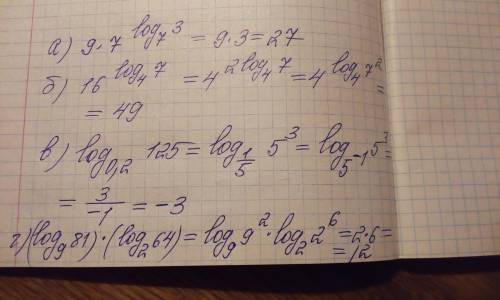 а) 9·7^{log_7 3} = 9·3 = 27
б) 16^{log_4 7} = 4^{2log_4 7} = 4^{log_4 7^2} =
= 49
в) log_{0,2} 125 = log_{1/5} 5^3 = log_{5^{-1}} 5^3 =
= 3/-1 = -3
г) (log_9 81)·(log_2 64) = log_9 9^2 · log_2 2^6 = 2·6 =
= 12